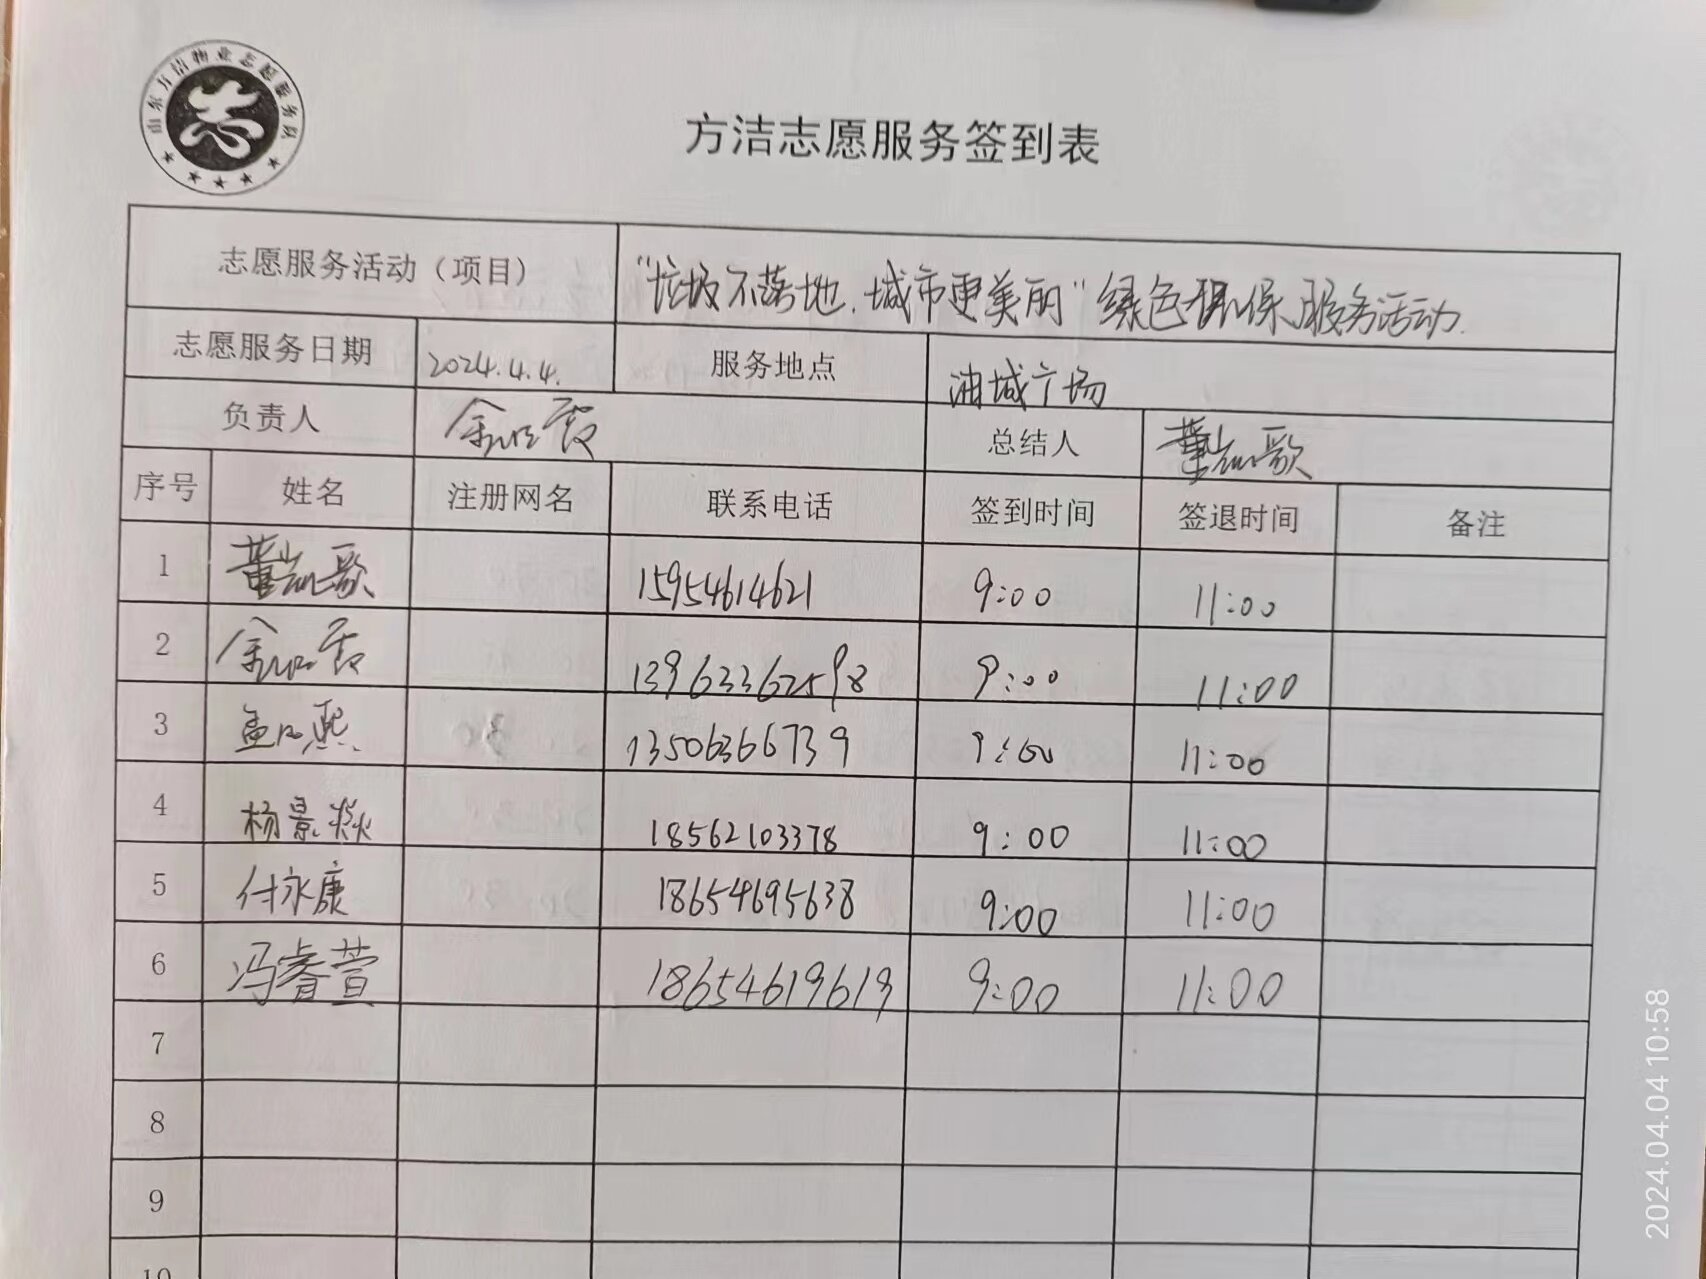 山东方洁物业志愿服务队
志
方洁志愿服务签到表
志愿服务活动（项目） "垃圾不落地.城市更美丽"绿色环保服务活动.
志愿服务日期 2024.4.4. 服务地点 油城广场
负责人 总结人 董凯歌
序号 姓名 注册网名 联系电话 签到时间 签退时间 备注
1 董凯歌 15954614621 9:00 11:00
2 13963362598 9:00 11:00
3 13506366739 9:00 11:00
4 杨景焱 18562103378 9:00 11:00
5 付永康 18654695638 9:00 11:00
6 冯睿萱 18654619619 9:00 11:00
7
8
9
10
2024.04.04 10:58